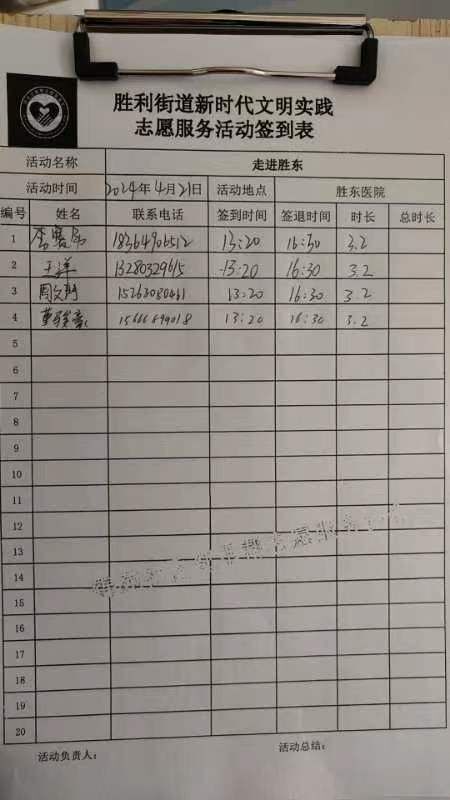 胜利街道新时代文明实践
志愿服务活动签到表
活动名称 走进胜东
活动时间 2024年4月21日 活动地点 胜东医院
编号 姓名 联系电话 签到时间 签退时间 时长 总时长
1 13:20 16:30 3.2
2 王洋 13280329615 13:20 16:30 3.2
3 周文 15263080461 13:20 16:30 3.2
4 13:20 16:30 3.2
5
6
7
8
9
10
11
12
13
14
15
16
17
18
19
20
活动负责人： 活动总结：